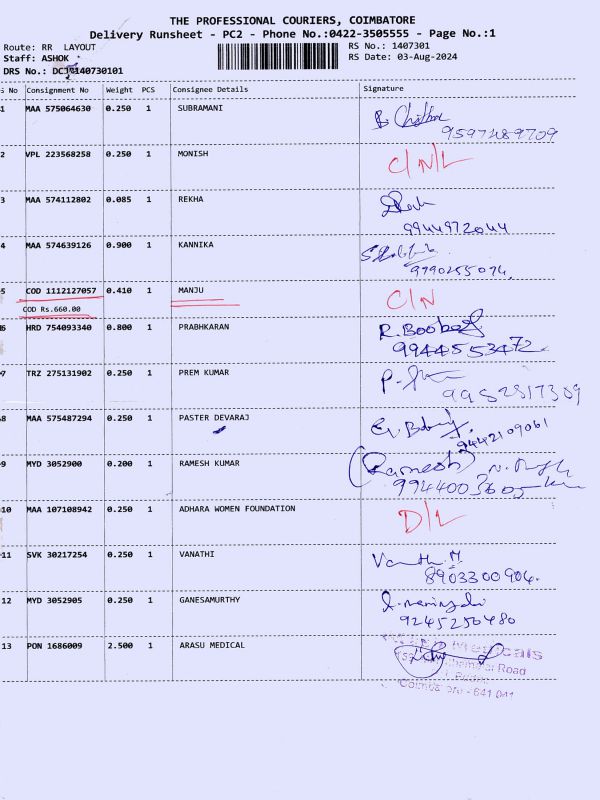 THE PROFESSIONAL COURIERS, COIMBATORE
Delivery Runsheet - PC2 - Phone No.:0422-3505555 - Page No.:1
Route: RR LAYOUT
RS No.: 1407301
Staff: ASHOK
RS Date: 03-Aug-2024
DRS No.:
S No Consignment No Weight PCS Consignee Details Signature
1 MAA 575064630 0.250 1 SUBRAMANI
9597489709
2 VPL 223568258 0.250 1 MONISH C/N/L
3 MAA 574112802 0.085 1 REKHA
9944972044
4 MAA 574639126 0.900 1 KANNIKA
9790255074.
5 COD 1112127057 0.410 1 MANJU C/N
COD Rs.660.00
6 HRD 754093340 0.800 1 PRABHKARAN
9944553472.
7 TRZ 275131902 0.250 1 PREM KUMAR
9952817309
8 MAA 575487294 0.250 1 PASTER DEVARAJ
9442109061
9 MYD 3052900 0.200 1 RAMESH KUMAR (Ramesh)
9944003605
10 MAA 107108942 0.250 1 ADHARA WOMEN FOUNDATION D/L
11 SVK 30217254 0.250 1 VANATHI
8903300904.
12 MYD 3052905 0.250 1 GANESAMURTHY
9245250480
13 PON 1686009 2.500 1 ARASU MEDICAL
Road
641 041